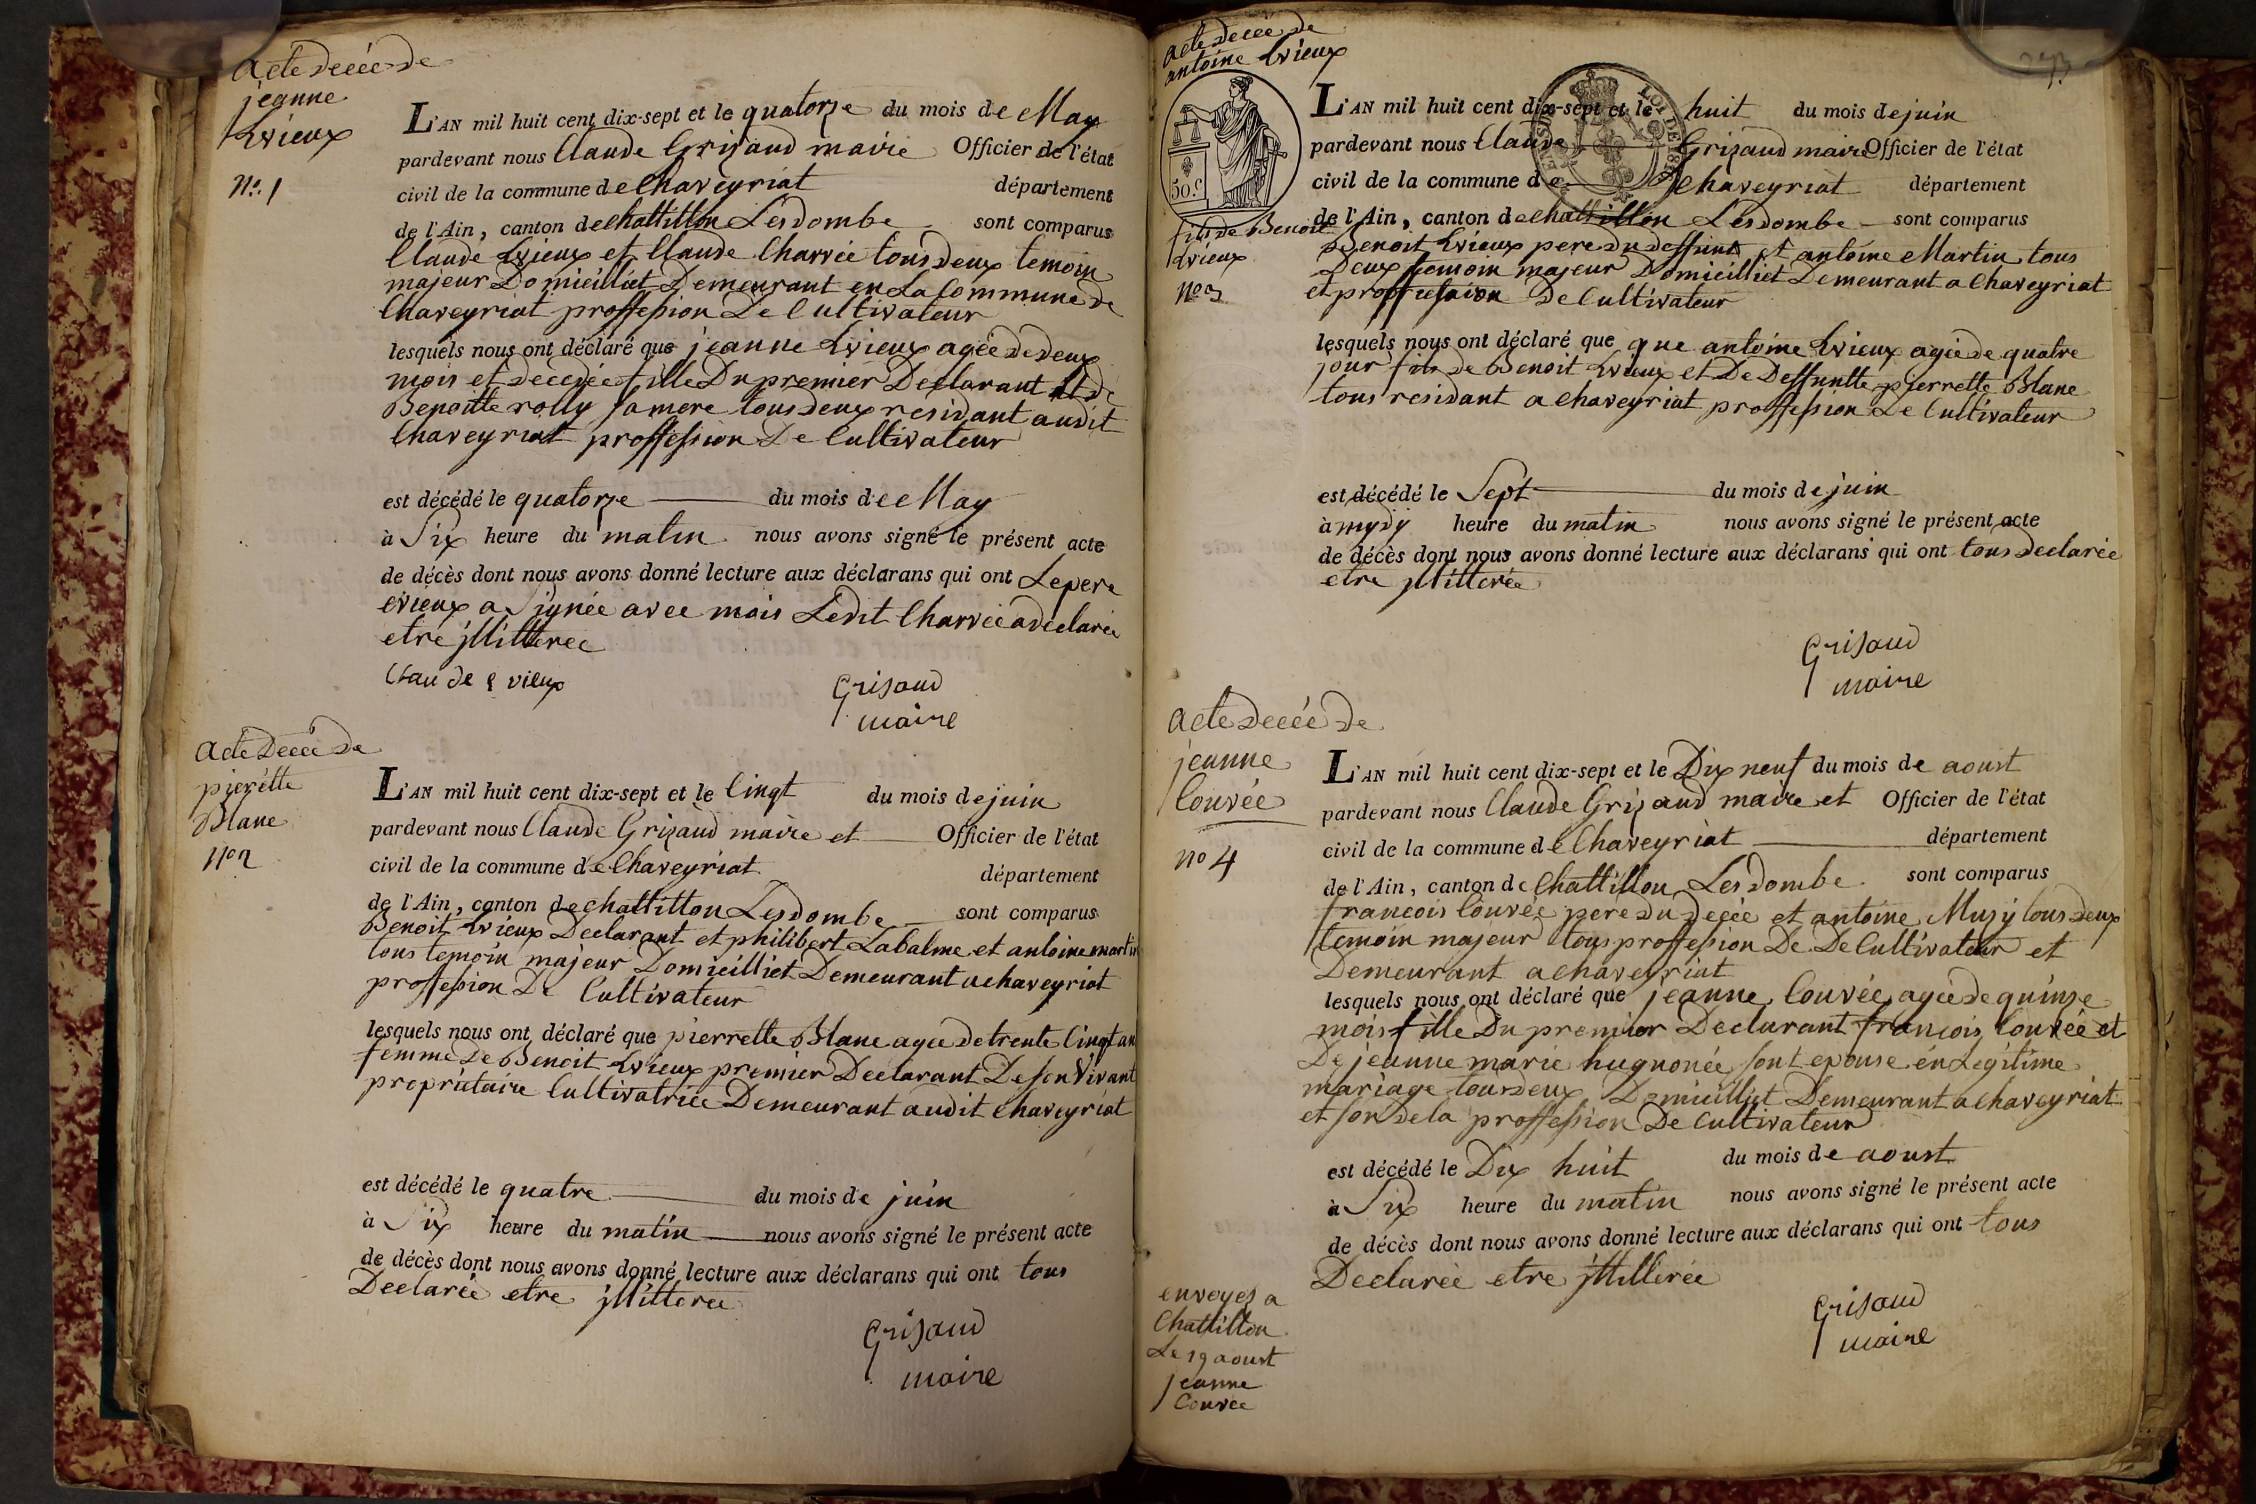 acte decée de
jeanne
Evieux
No. 1
L'AN mil huit cent dix-sept et le quatorze du mois de May
pardevant nous Claude Grizaud maire Officier de l'état
civil de la commune de Chaveyriat département
de l'Ain, canton de chattillon Lesdombe sont comparus
Claude Evieux et Claude Charvée tous deux temoin
majeur Domicilliet Demeurant en La Commune de
Chaveyriat proffession De Cultivateur
lesquels nous ont déclaré que jeanne Evieux agée de deux
mois et decedée fille Du premier Declarant et de
Benoitte rolly sa mere tous deux residant audit
Chaveyriat proffession De Cultivateur
est décédé le quatorze du mois de May
à Six heure du matin nous avons signé le présent acte
de décès dont nous avons donné lecture aux déclarans qui ont Le pere
evieux a Signée avec mois Ledit Charvée a declarée
etre jllitteree
Claude evieux
Grisaud
maire
acte Decée de
pierétte
Blanc
No 2
L'AN mil huit cent dix-sept et le Cinqt du mois de juin
pardevant nous Claude Grizaud maire et Officier de l'état
civil de la commune de Chaveyriat département
de l'Ain, canton de chattitton Lesdombe sont comparus
Benoit Evieux Declarant et philibert Labalme et antoine martin
tous temoin majeur Domicilliet Demeurant a chaveyriat
proffession De Cultivateur
lesquels nous ont déclaré que pierrette Blanc agée de trente Cinqt an
femme de Benoit Evieux premier Declarant De son Vivant
propriétaire Cultivatrice Demeurant audit chaveyriat
est décédé le quatre du mois de juin
à Six heure du matin nous avons signé le présent acte
de décès dont nous avons donné lecture aux déclarans qui ont tous
Declarée etre jllitteree
Grisaud
maire
acte decée de
antoine Evieux
50 c.
fils de Benoit
Evieux
No 3
LOI DE 1816
L'AN mil huit cent dix-sept et le huit du mois de juin
pardevant nous Claude Grizaud maire Officier de l'état
civil de la commune de Chaveyriat département
de l'Ain, canton de chattillon Lesdombe sont comparus
Benoit Evieux pere du deffunt et antoine Martin tous
Deux temoin majeur Domicilliet Demeurant a Chaveyriat
et De Cultivateur
lesquels nous ont déclaré que que antoine Evieux agée de quatre
jour fils de Benoit Evieux et De Deffuntte pierrette Blanc
tous residant a chaveyriat proffession De Cultivateur
est décédé le Sept du mois de juin
à mydÿ heure du matin nous avons signé le présent acte
de décès dont nous avons donné lecture aux déclarans qui ont tous declarée
etre jllitterée
Grisaud
maire
acte decée de
jeanne
Couvée
no 4
L'AN mil huit cent dix-sept et le Dix neuf du mois de aoust
pardevant nous Claude Grizaud maire et Officier de l'état
civil de la commune de Chaveyriat département
de l'Ain, canton de Chattillon Lesdombe sont comparus
francois Couvée pere du decée et antoine Muzÿ tous deux
temoin majeur tous proffession De De Cultivateur et
Demeurant a chaveyriat
lesquels nous ont déclaré que jeanne Couvée agée de quinze
mois fille Du premier Declarant francois Couvée et
De jeanne marie hugnonée sont epouse en Legitime
mariage tous deux Domicilliet Demeurant a chaveyriat
et son de la proffession De Cultivateur
est décédé le Dix huit du mois de aoust
à Six heure du matin nous avons signé le présent acte
de décès dont nous avons donné lecture aux déclarans qui ont tous
Declarée etre jllitterée
Grisaud
maire
envoyez a
Chattitton
Le 19 aoust
jeanne
Couvée